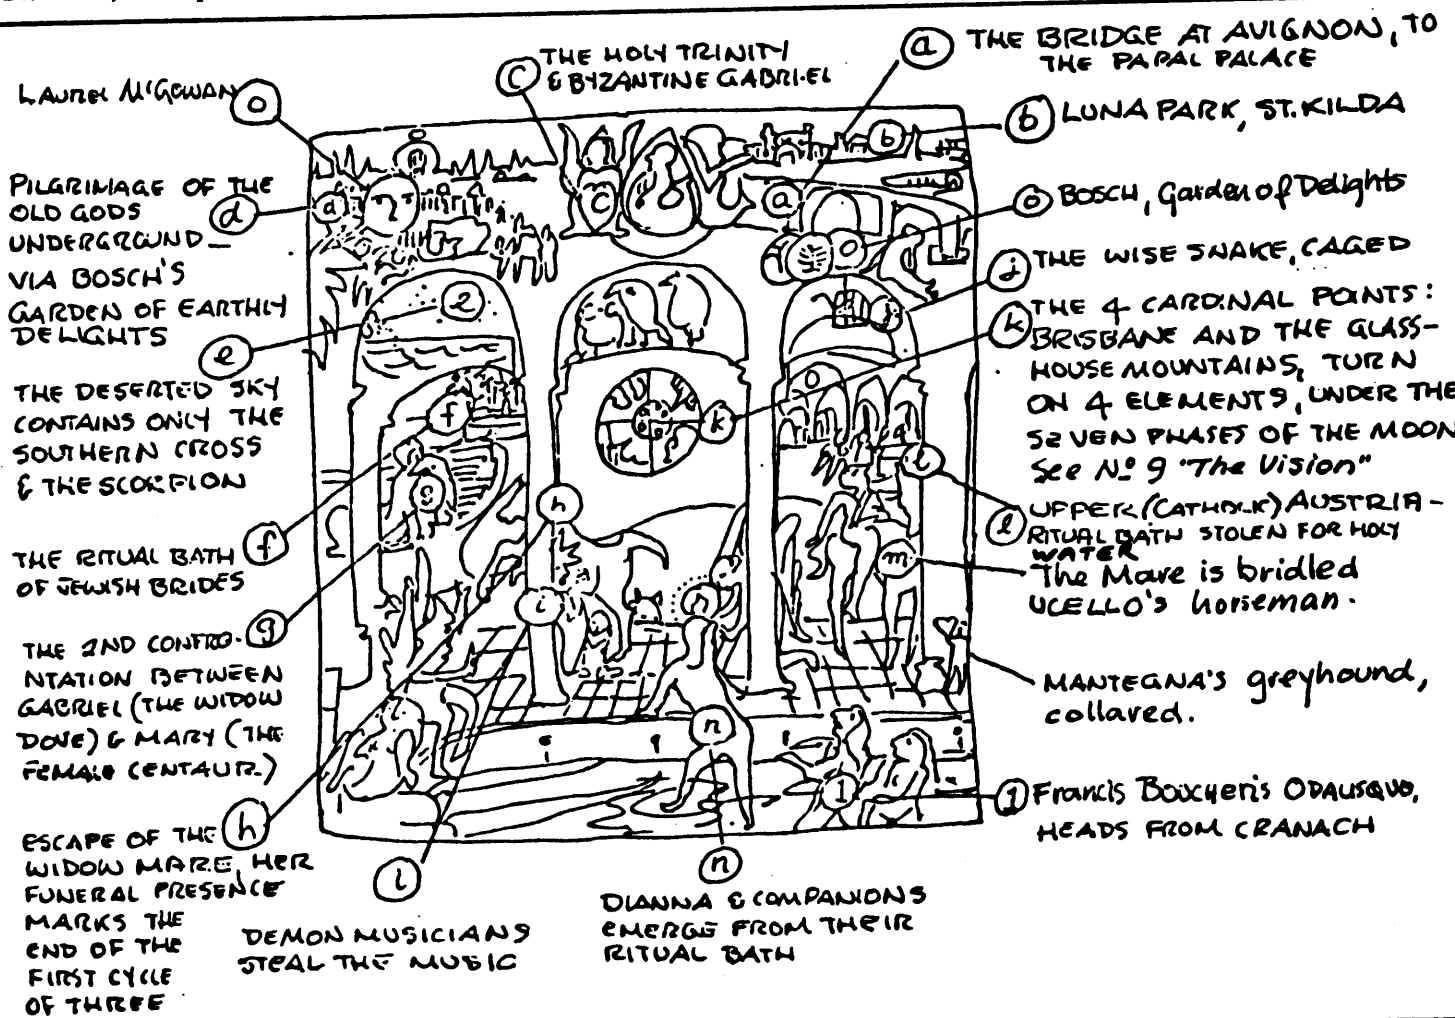 LAUREL McGOWAN o
PILGRIMAGE OF THE
OLD GODS d
UNDERGROUND—
VIA BOSCH'S
GARDEN OF EARTHLY
DELIGHTS
e
THE DESERTED SKY
CONTAINS ONLY THE
SOUTHERN CROSS
& THE SCORPION
THE RITUAL BATH f
OF JEWISH BRIDES
THE 2ND CONFRO- g
NTATION BETWEEN
GABRIEL (THE WIDOW
DOVE) & MARY (THE
FEMALE CENTAUR.)
ESCAPE OF THE h
WIDOW MARE, HER
FUNERAL PRESENCE
MARKS THE
END OF THE
FIRST CYCLE
OF THREE
i
DEMON MUSICIANS
STEAL THE MUSIC
n
DIANNA & COMPANIONS
EMERGE FROM THEIR
RITUAL BATH
C THE HOLY TRINITY
& BYZANTINE GABRIEL
a THE BRIDGE AT AVIGNON, TO
THE PAPAL PALACE
b LUNA PARK, ST. KILDA
o BOSCH, Garden of Delights
j THE WISE SNAKE, CAGED
k THE 4 CARDINAL POINTS:
BRISBANE AND THE GLASS-
HOUSE MOUNTAINS, TURN
ON 4 ELEMENTS, UNDER THE
SEVEN PHASES OF THE MOON
See Nº 9 "The Vision"
l UPPER (CATHOLIC) AUSTRIA-
RITUAL BATH STOLEN FOR HOLY
WATER
The Mare is bridled
UCELLO's horseman.
MANTEGNA's greyhound,
collared.
Francis Boucheris ODALISQUO,
HEADS FROM CRANACH
b
C
a
o
e
j
f
k
l
g
h
m
i
n
n